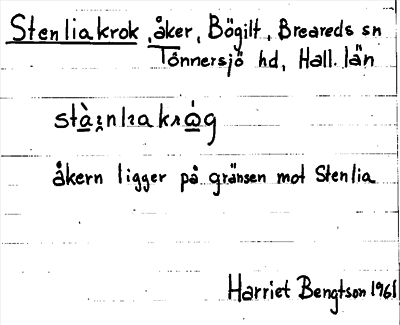 Stenliakrok, åker, Bögilt, Breareds sn
Tönnersjö hd, Hall. län
åkern ligger på gränsen mot Stenlia
Harriet Bengtson 1961